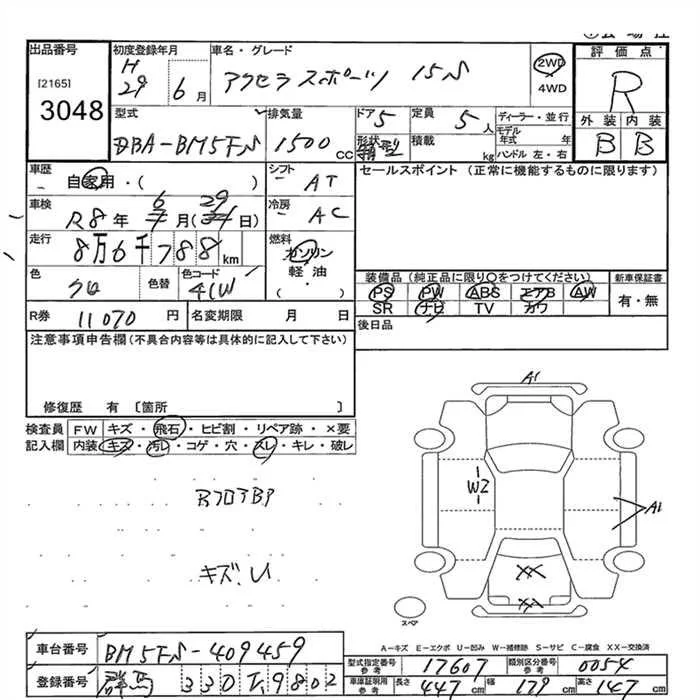 出品番号 初度登録年月 車名・グレード 評価点
[2165] H 29 6月 アクセラスポーツ 15S 2WD 4WD R
3048
型式 排気量 ドア 5 定員 5人 ディーラー・並行 外装 内装
DBA-BM5FS 1500 CC 形状 積載 kg モデル年式 年 ハンドル 左・右 B B
車歴 自家用・( ) シフト AT セールスポイント (正常に機能するものに限ります)
車検 R8年 6 7月(29 日) 冷房 AC
走行 8万6千788km 燃料 ガソリン 軽・油 ( )
色 クロ 色替 色コード 41W
装備品(純正品に限り○をつけてください) 新車保証書
PS PW ABS エアB AW 有・無
SR ナビ TV カワ
R券 11070円 名変期限 月 日 後日品
注意事項申告欄(不具合内容等は具体的に記入して下さい)
修復歴 有 〔箇所 〕
検査員 FW キズ・飛石・ヒビ割・リペア跡・×要
記入欄 内装 キズ・汚レ・コゲ・穴・スレ・キレ・破レ
A1
W2
A1
XX
XX
キズ.U
スペア
A-キズ E-エクボ U-凹み W-補修跡 S-サビ C-腐食 XX-交換済
車台番号 BM5FS-409459 型式指定番号 参考 17607 類別区分番号 参考 0054
登録番号 群馬 330 て 9802 車庫証明用 参考 長さ 447cm 幅 179cm 高さ 147cm